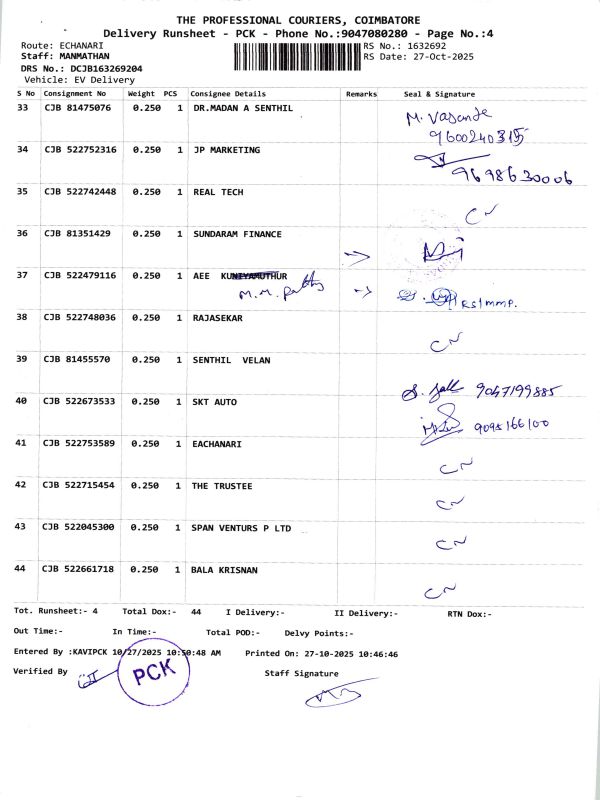 THE PROFESSIONAL COURIERS, COIMBATORE
Delivery Runsheet - PCK - Phone No.:9047080280 - Page No.:4
Route: ECHANARI RS No.: 1632692
Staff: MANMATHAN RS Date: 27-Oct-2025
DRS No.: DCJB163269204
Vehicle: EV Delivery
S No Consignment No Weight PCS Consignee Details Remarks Seal & Signature
33 CJB 81475076 0.250 1 DR.MADAN A SENTHIL
9600240315
34 CJB 522752316 0.250 1 JP MARKETING
9698630006
35 CJB 522742448 0.250 1 REAL TECH
CN
36 CJB 81351429 0.250 1 SUNDARAM FINANCE
37 CJB 522479116 0.250 1 AEE KUNIYAMUTHUR
M.M.
38 CJB 522748036 0.250 1 RAJASEKAR
CN
39 CJB 81455570 0.250 1 SENTHIL VELAN
9047199885
40 CJB 522673533 0.250 1 SKT AUTO
9095166100
41 CJB 522753589 0.250 1 EACHANARI
CN
42 CJB 522715454 0.250 1 THE TRUSTEE
CN
43 CJB 522045300 0.250 1 SPAN VENTURS P LTD
CN
44 CJB 522661718 0.250 1 BALA KRISNAN
CN
Tot. Runsheet:- 4 Total Dox:- 44 I Delivery:- II Delivery:- RTN Dox:-
Out Time:- In Time:- Total POD:- Delvy Points:-
Entered By :KAVIPCK 10/27/2025 10:50:48 AM Printed On: 27-10-2025 10:46:46
Verified By PCK Staff Signature